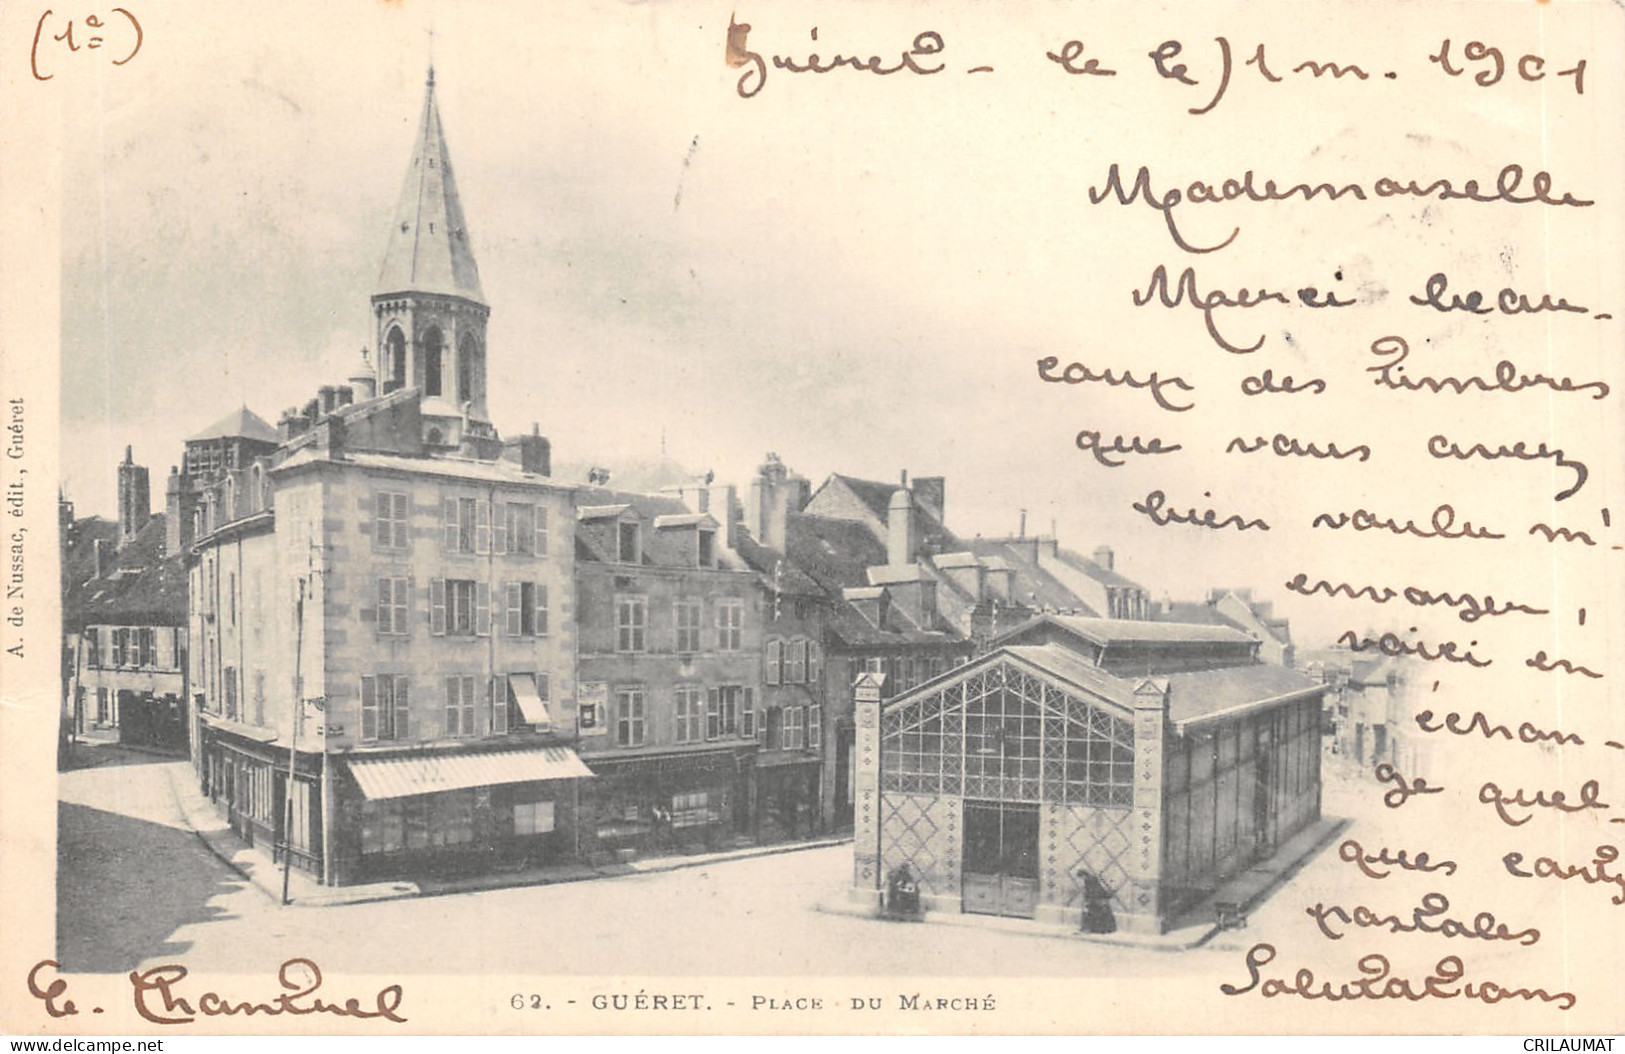 (1e)
Guéret - le 1 m. 1901
Mademoiselle
Merci beau-
coup des timbres
que vous avez
bien voulu m'
envoyer,
voici en
échan-
ge quel-
ques cartes
postales
Salutations
Chantuel
A. de Nussac, édit., Guéret
62. - GUÉRET. - PLACE DU MARCHÉ
CRILAUMAT